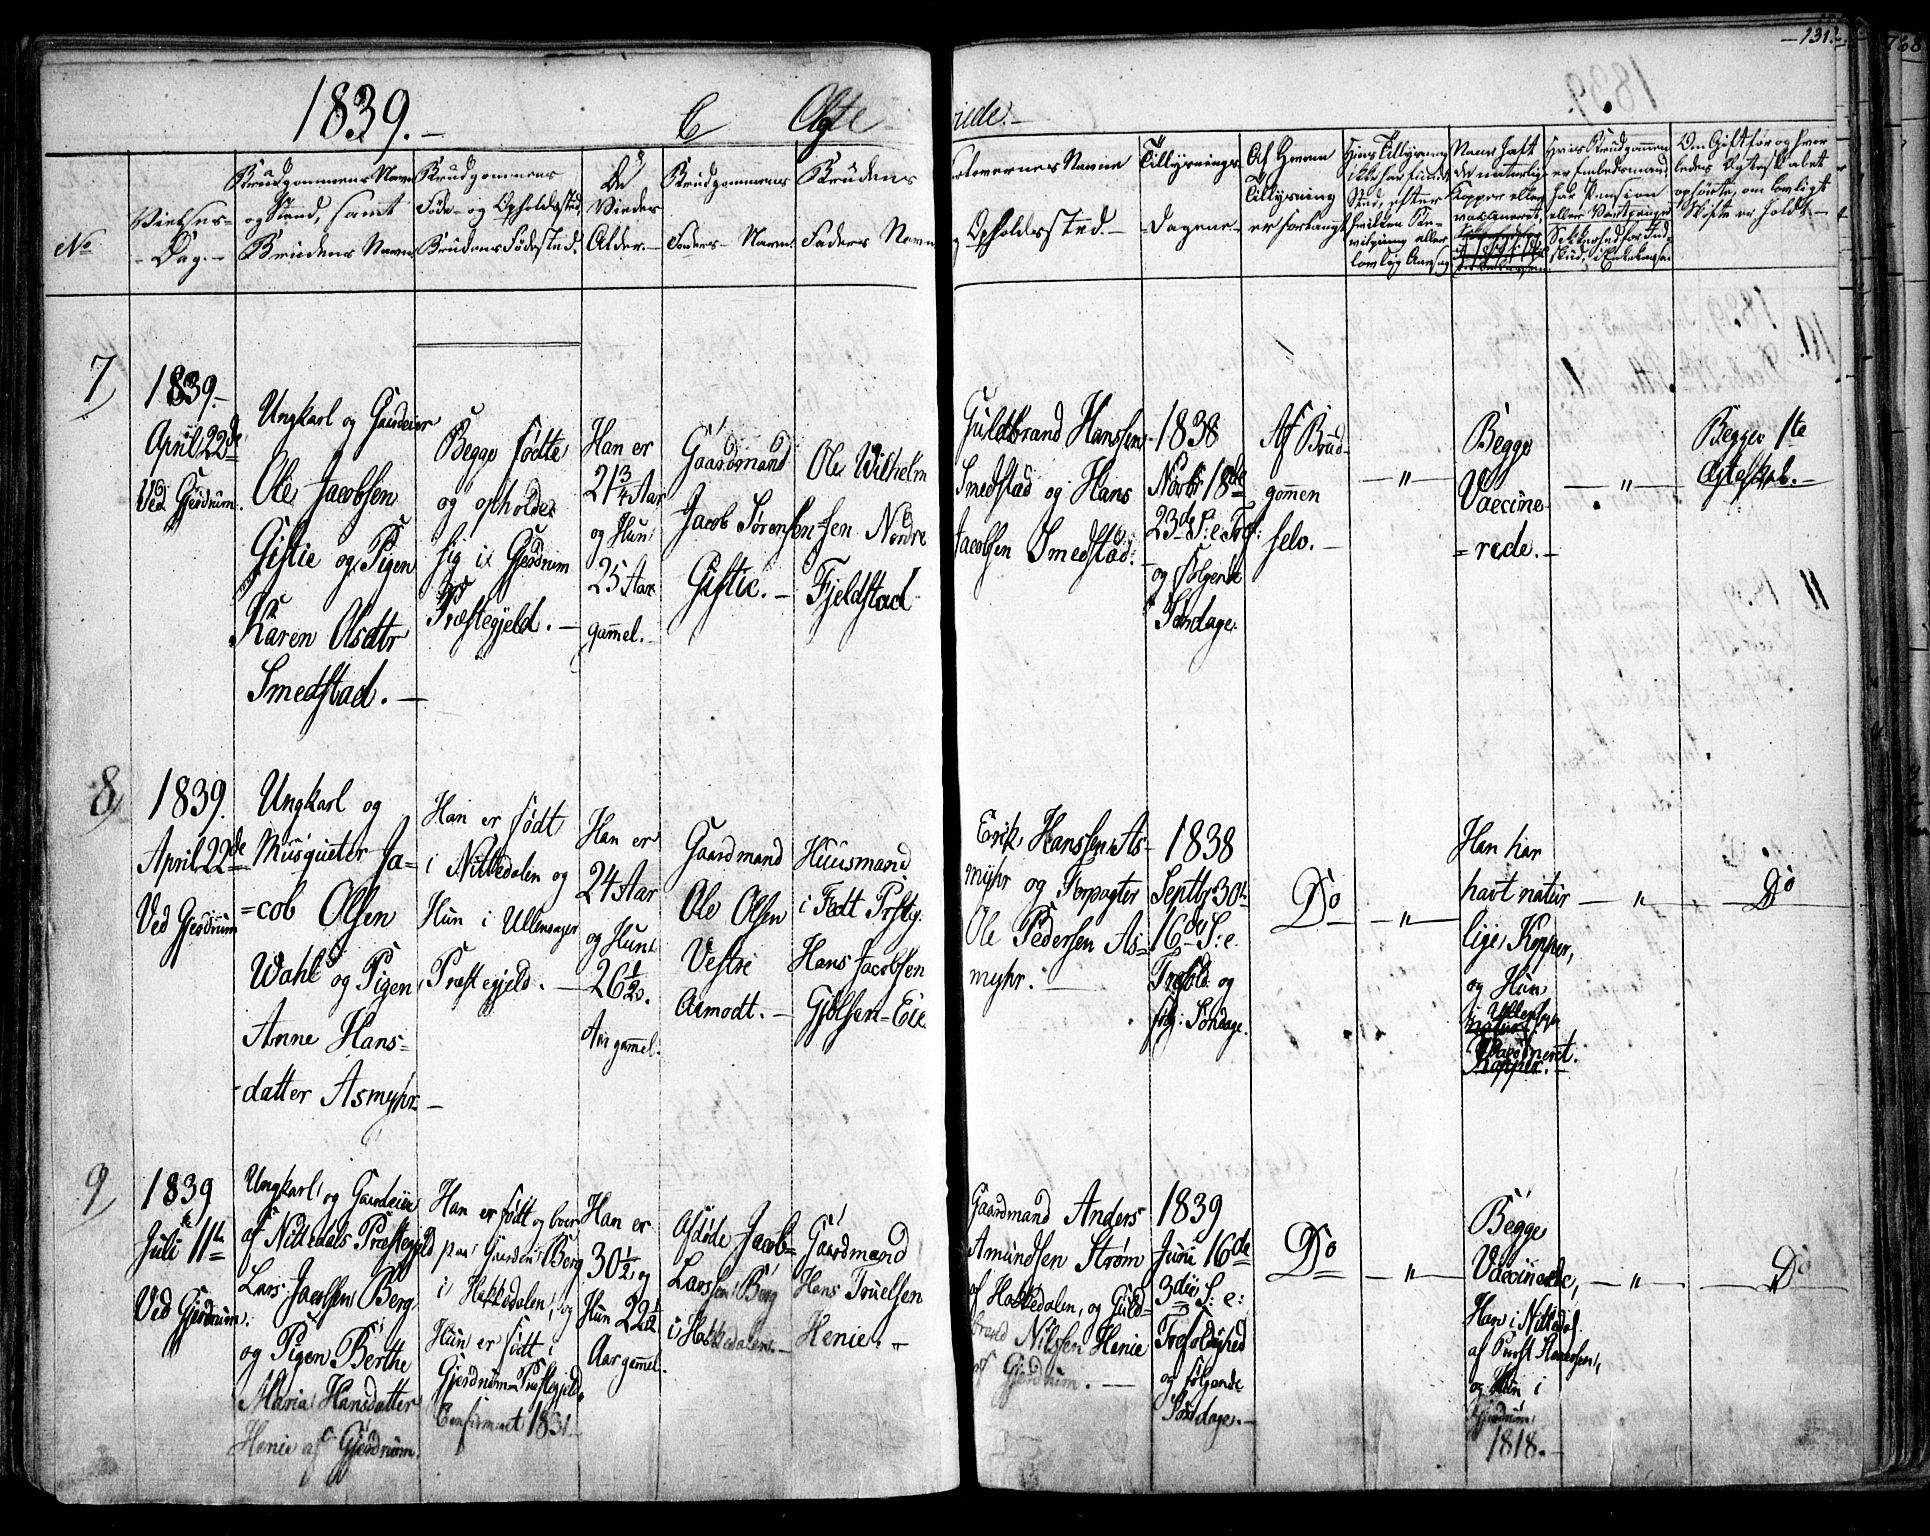 131.
1839.
C Ægte viede.
No.
Vielses-
Dag.
Brudgommens Navn
og Stand, samt
Brudens Navn
Brudgommens
Føde- og Opholdssted,
Brudens Fødested.
De
Viedes
Alder.
Brudgommens
Faders Navn.
Brudens
Faders Navn
Forlovernes Navne
og
Opholdssted.
Tillysnings-
Dagene
Af Hvem
Tillysning
er forlangt
7
1839.
April 22de
Ved Gjerdrum.
Ungkarl og Gaardeier
Ole Jacobsen
Gistie og Pigen
Karen Olsdtr
Smedstad.
Begge fødte
og opholder
sig i Gjerdrum
Præstegjeld.
Han er
21 3/4 Aar
og Hun
25 Aar
gammel.
Gaardmand
Jacob Sørensen
Gistie.
Ole Wilhelm
=sen Nordre
Fjeldstad
Guldbrand Hanssen
Smedstad og Hans
Jacobsen Smedstad.
1838
Novbr 18de
23de S: e: Tref:
og følgende
Søndage.
Af Brud-
gommen
selv.
"
Begge
Vaccine-
=rede.
"
Begges 1te
Ægteskab.
8
1839.
April 22de
Ved Gjerdrum
Ungkarl og
Musqueter Ja-
=cob Olsen
Wahl og Pigen
Anne Hans-
datter Asmyhr
Han er født
i Nittedalen og
Hun i Ullensager
Præstegjeld.
Han er
24 Aar
og Hun
26 1/2
Aar gammel.
Gaardmand
Ole Olsen
Vestre
Aamodt.
Huusmand
i Fedt Prstg:
Hans Jacobsen
Gjølsen-Eie
Erik Hanssen As-
myhr og Forpagter
Ole Pedersen As-
myhr.
1838
Septbr 30te
16de S: e.
Trefold. og
følg: Søndage.
Do
"
Han har
havt natur
lige Kopper,
og Hun
i Ullensager
Vaccineret.
"
Do
9
1839
Juli 11te
Ved Gjerdrum.
Ungkarl og Gaardeier
af Nittedals Præstegjeld
Lars Jacobsen Berg
og Pigen Berthe
Maria Hansdatter
Henie af Gjerdrum.
Han er født og boer
paa Gaarden Berg
i Hakkedalen, og
Hun er født i
Gjerdrum Præstegjeld,
Confirmeret 1831.
Han er
30 1/2 og
Hun 22 1/2
Aar gammel.
Afdøde Jacob
Larssen Berg
i Hakkedalen.
Gaardmand
Hans Truelsen
Henie.
Gaardmand Anders
Amundsen Strøm
af Hakkedalen, og Guld-
brand Nilssen Henie
af Gjerdrum.
1839
Juni 16de
3die S: e:
Trefoldighed
og følgende
Søndage.
Do
"
Begge
Vaccinerede,
Han i Nittedal
af Provst
og Hun i
Gjerdrum
1818.
"
Do